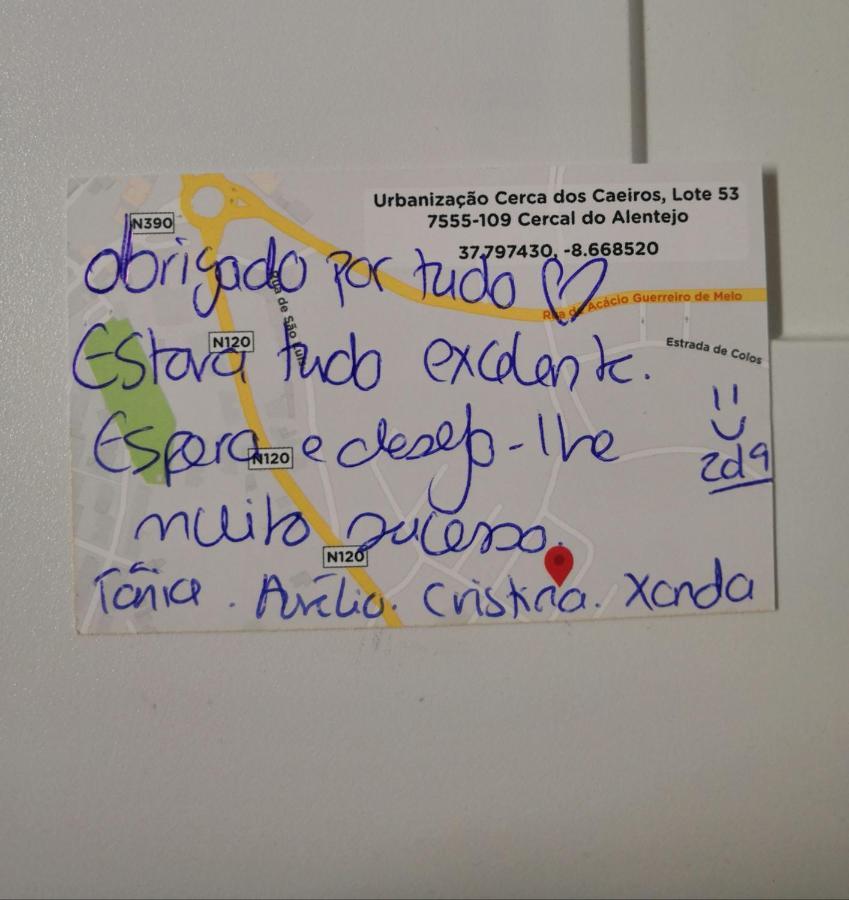 Urbanização Cerca dos Caeiros, Lote 53
7555-109 Cercal do Alentejo
37.797430, -8.668520
N390
obrigado por tudo ♡
Rua de Acácio Guerreiro de Melo
Rua de São Luís
N120
Estrada de Colos
Estava tudo excelente.
Espero e desejo-lhe
N120
muito sucesso.
N120
Tânia. Aurélio. Cristina. Xanda